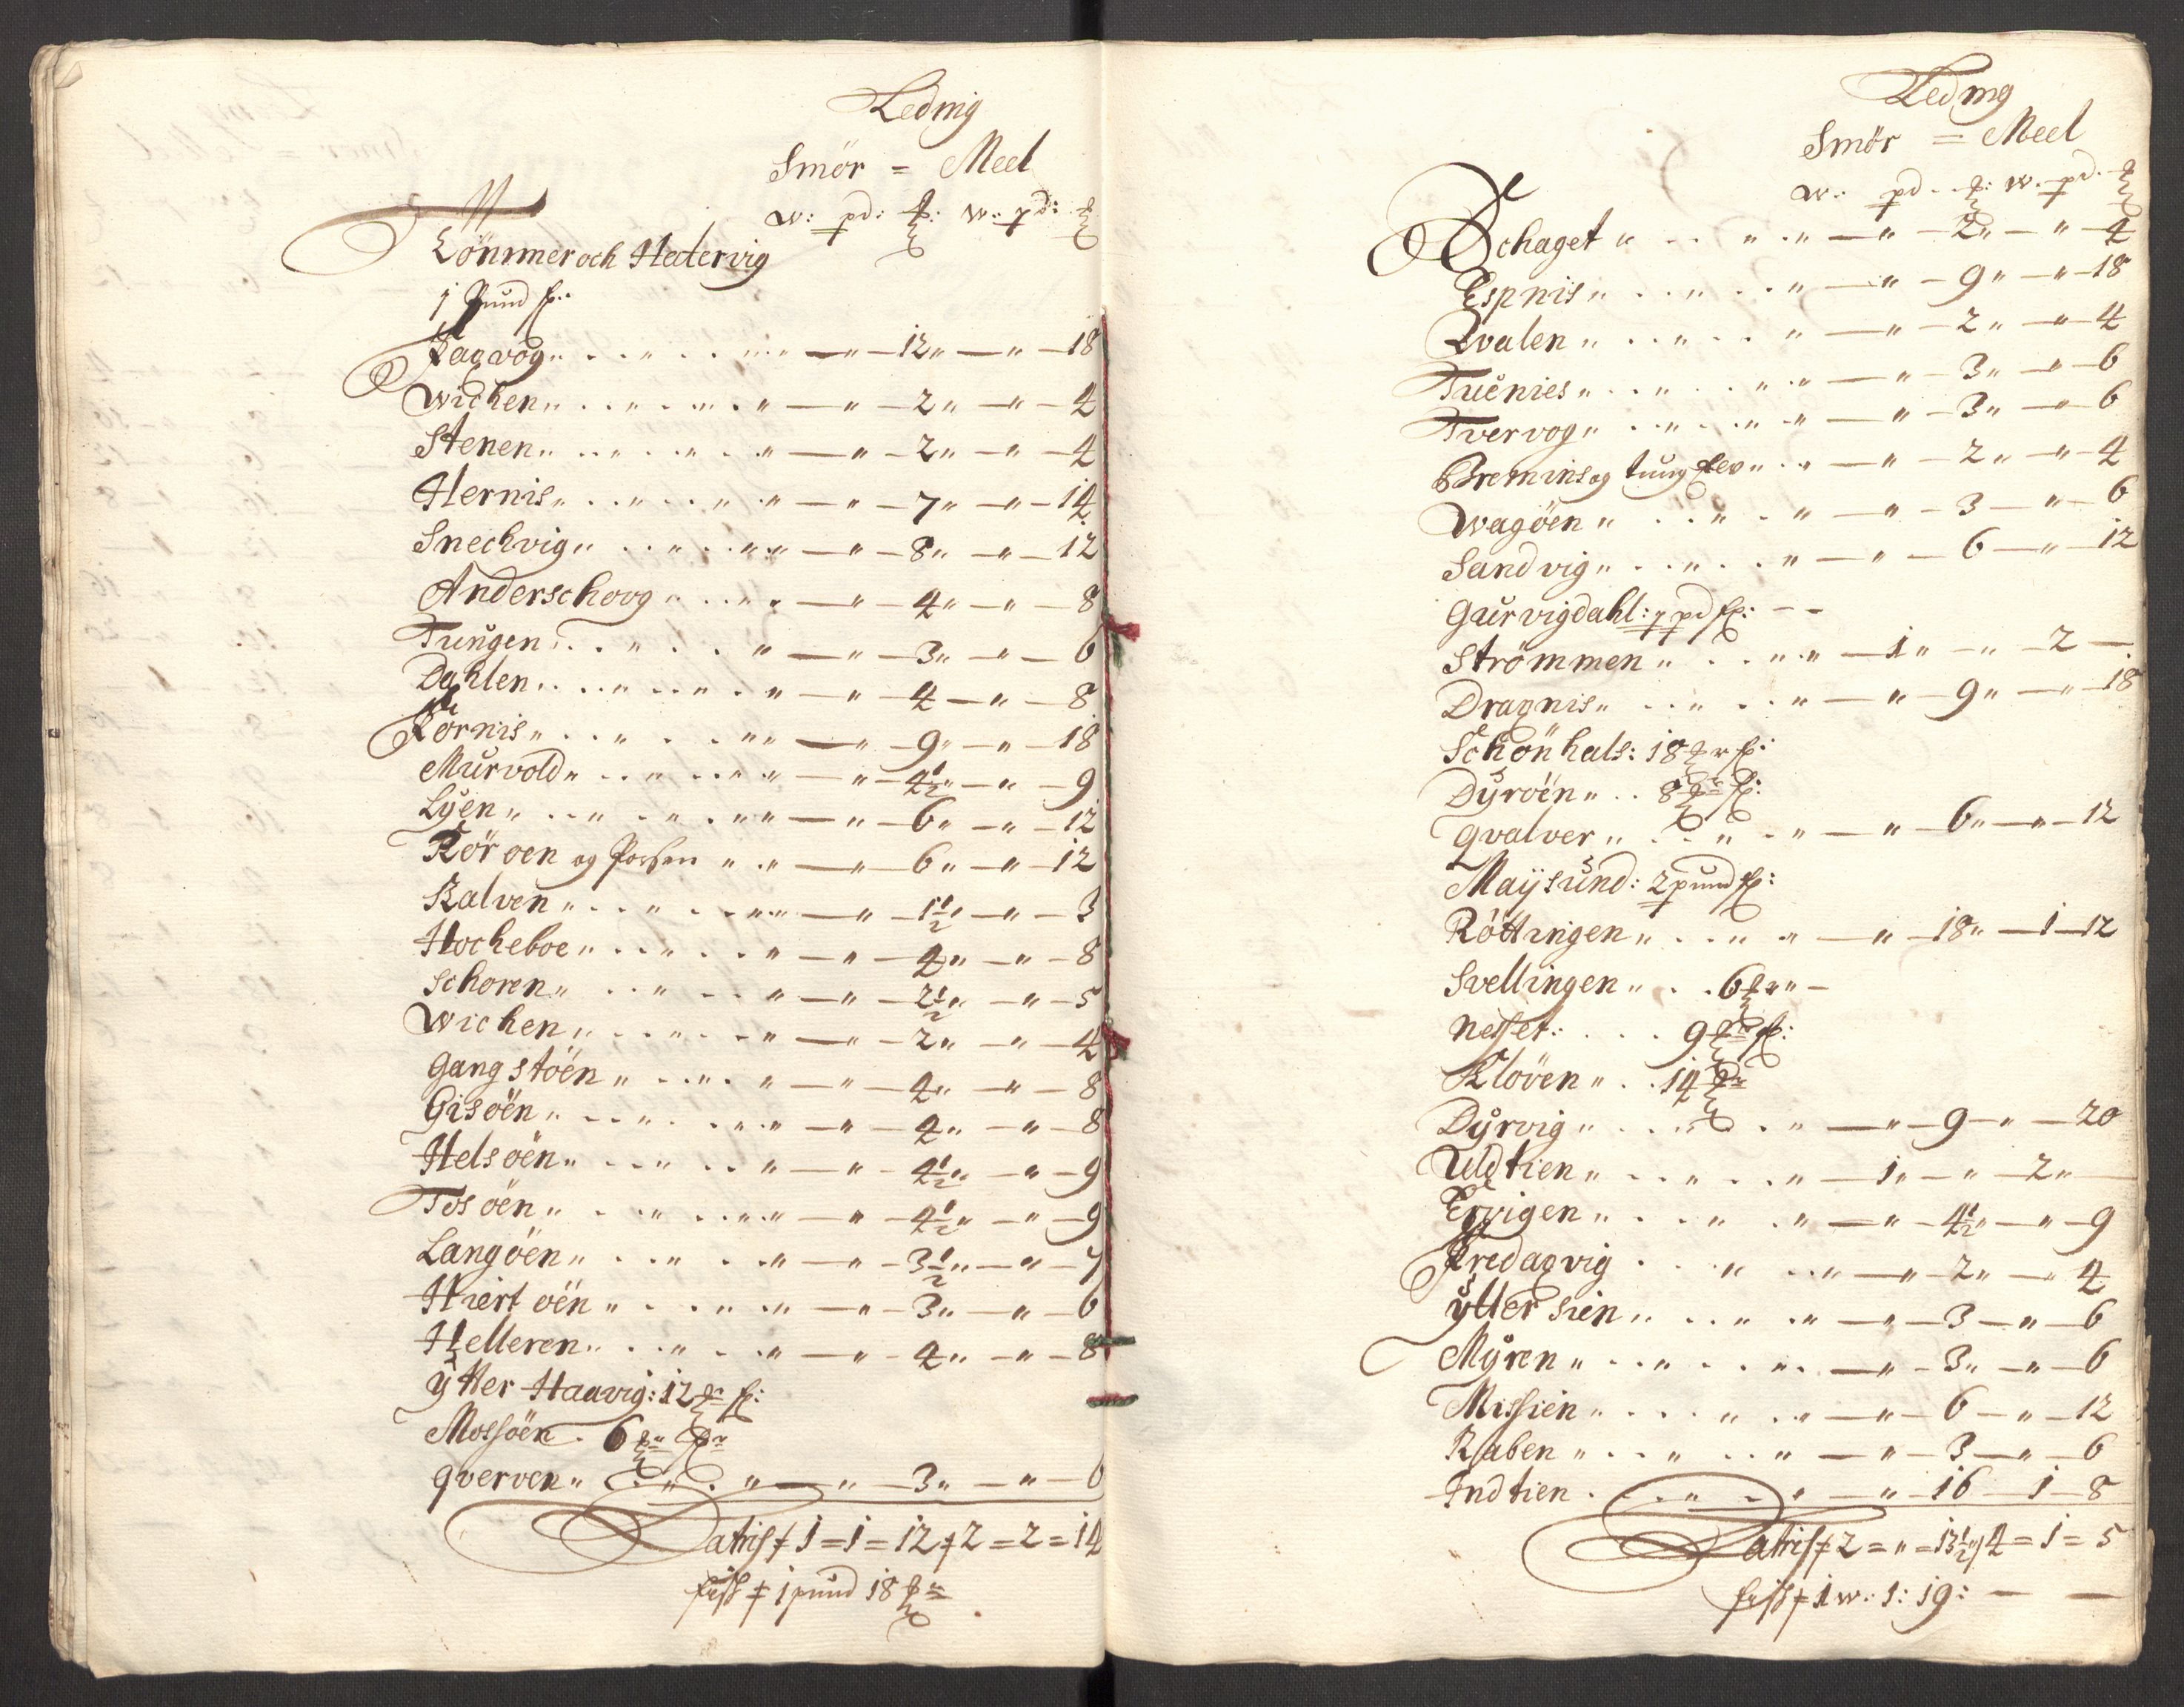 Leding
Smör = Meel
w: pd: ℔: w: pd: ℔
Lömmer och Hedervig
j pund f:
Fagvog " . . " . . " " — " — 12 " — " — 18
Wichen " . . " . . " . " — " — 2 " — " — 4
Stenen " . . " . . " . " — " — 2 " — " — 4
Hernis " . . " . . " " — " — 7 " — " — 14
Snechvig " . . " . . " " — " — 8 " — " — 12
Anderschoog " . . " . — " — 4 " — " — 8
Tungen . . . " . . " — " — 3 " — " — 6
Dahlen . . . " . . " . " — " — 4 — " — 8
Fornis " . . " . . " " — " — 9 " — " — 18
Murvold " . . " . . " " — " — 4½ " — " — 9
Lyen " . . " . . " " — " — 6 " — " — 12
Röroen og Porsen " . " — " — 6 " — " — 12
Kalven " . . " . . " " — " — 1½ " — " — 3
Hocheboe " . . " . . " — " — 4 " — " — 8
Schoren " . . " . . " — " — 2½ " — " — 5
Wichen " . . . . . " — " — 2 " — " — 4
Gangstöen " . . " . " — " — 4 " — " — 8
Gisöen " . . " . . " " — " — 4 " — " — 8
Helsöen " . . " . . " — " — 4½ " — " — 9
Tosöen " . . " . . " " — " — 4½ " — " — 9
Langöen " . . " . . " — " — 3½ " — " — 7
Hiertöen " . . " . " — " — 3 " — " — 6
Helleren " . . " . . " — " — 4 " — " — 8
Ytter Haavig: 12 ℔r f:
Mossöen . 6 ℔r fr
Qverven " . . " . " — " — 3 " — " — 6
Latris f 1 = 1 = 12 f 2 = 2 = 14
fisk f 1 pund 18 ℔r
Leding
Smör = Meel
w: pd: ℔: w: pd: ℔
Schaget " . . " . " — " — 2 " — " — 4
Espnis " . . " . . " — " — 9 " — " — 18
Qvalen " . . " . . " — " — 2 " — " — 4
Tuenies " . . " . . " " — " — 3 " — " — 6
Tvervog " . . " . . " " — " — 3 " — " — 6
Bremins og tung Elev " . " — " — 2 " — " — 4
Wagöen " . . " . " — " — 3 — " — 6
Sandvig " . . " . . " — " — 6 — " — 12
Gurvigdahl: 7 pd f: — —
Strömmen " . . " " — 1 " — " — 2 —
Dragnis " . . " . . " — " — 9 " — " — 18
Schönhals: 18 ℔r f:
Dyröen " . . 8 ℔r f:
Qvalver " . . " . " — " — 6 " — " — 12
Maysund: 2 pund f:
Röttingen " . . " . " — " — 18 " — 1 — 12
Svellingen " . . 6 ℔r " —
Nesset: . . . 9 ℔r f:
Klöven " . . 14 ℔r
Dyrvig " . . " . . " — " — 9 — " — 20
Uldtien " . . " . . " — 1 " — " — 2 " —
Ervigen " . . " . " — " — 4½ " — " — 9
Fredagvig . . " . . " — " — 2 " — " 4
Ytter sien " . . " . " — " — 3 — " — 6
Myren " . . " . . " . — " — 3 " — " — 6
Missien " . . . " . " — " — 6 — " — 12
Raben " . . " . . " — " — 3 — " — 6
Indtien . . . " . " — " — 16 — 1 — 8
Latris f 2 = " = 13½ f 4 = 1 = 5
fisk f 1 w: 1: 19: — —